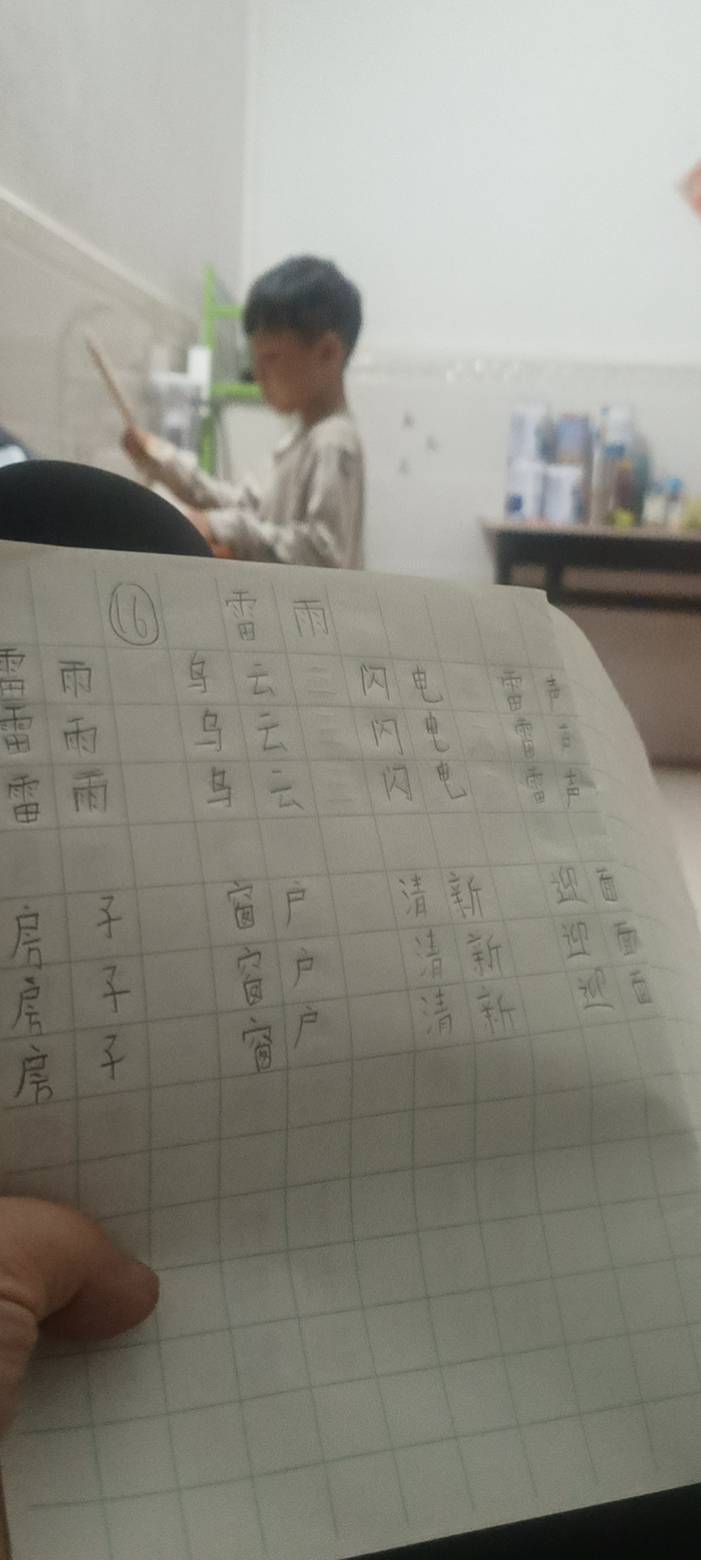 ⑯ 雷雨
雷雨 乌云 闪电 雷声
雷雨 乌云 闪电 雷声
雷雨 乌云 闪电 雷声
房子 窗户 清新 迎面
房子 窗户 清新 迎面
房子 窗户 清新 迎面